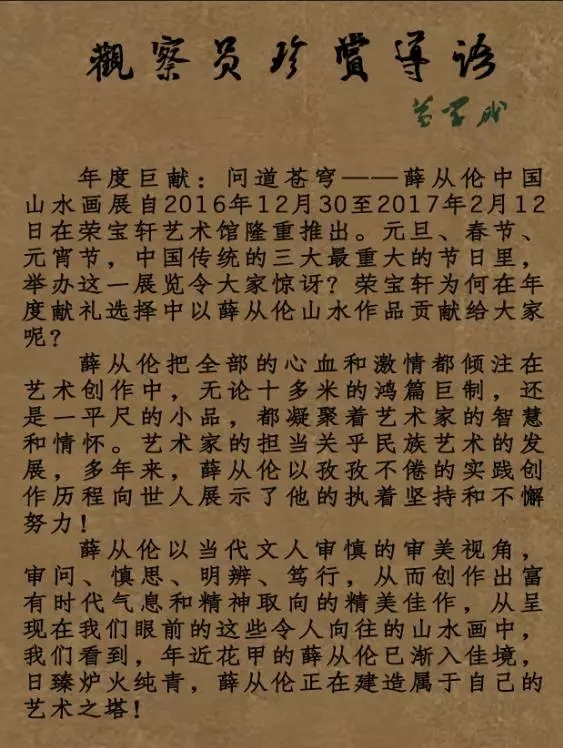 觀察员珍賞導语
年度巨献：问道苍穹——薛从伦中国
山水画展自2016年12月30至2017年2月12
日在荣宝轩艺术馆隆重推出。元旦、春节、
元宵节，中国传统的三大最重大的节日里，
举办这一展览令大家惊讶？荣宝轩为何在年
度献礼选择中以薛从伦山水作品贡献给大家
呢？
薛从伦把全部的心血和激情都倾注在
艺术创作中，无论十多米的鸿篇巨制，还
是一平尺的小品，都凝聚着艺术家的智慧
和情怀。艺术家的担当关乎民族艺术的发
展，多年来，薛从伦以孜孜不倦的实践创
作历程向世人展示了他的执着坚持和不懈
努力！
薛从伦以当代文人审慎的审美视角，
审问、慎思、明辨、笃行，从而创作出富
有时代气息和精神取向的精美佳作，从呈
现在我们眼前的这些令人向往的山水画中，
我们看到，年近花甲的薛从伦已渐入佳境，
日臻炉火纯青，薛从伦正在建造属于自己的
艺术之塔！